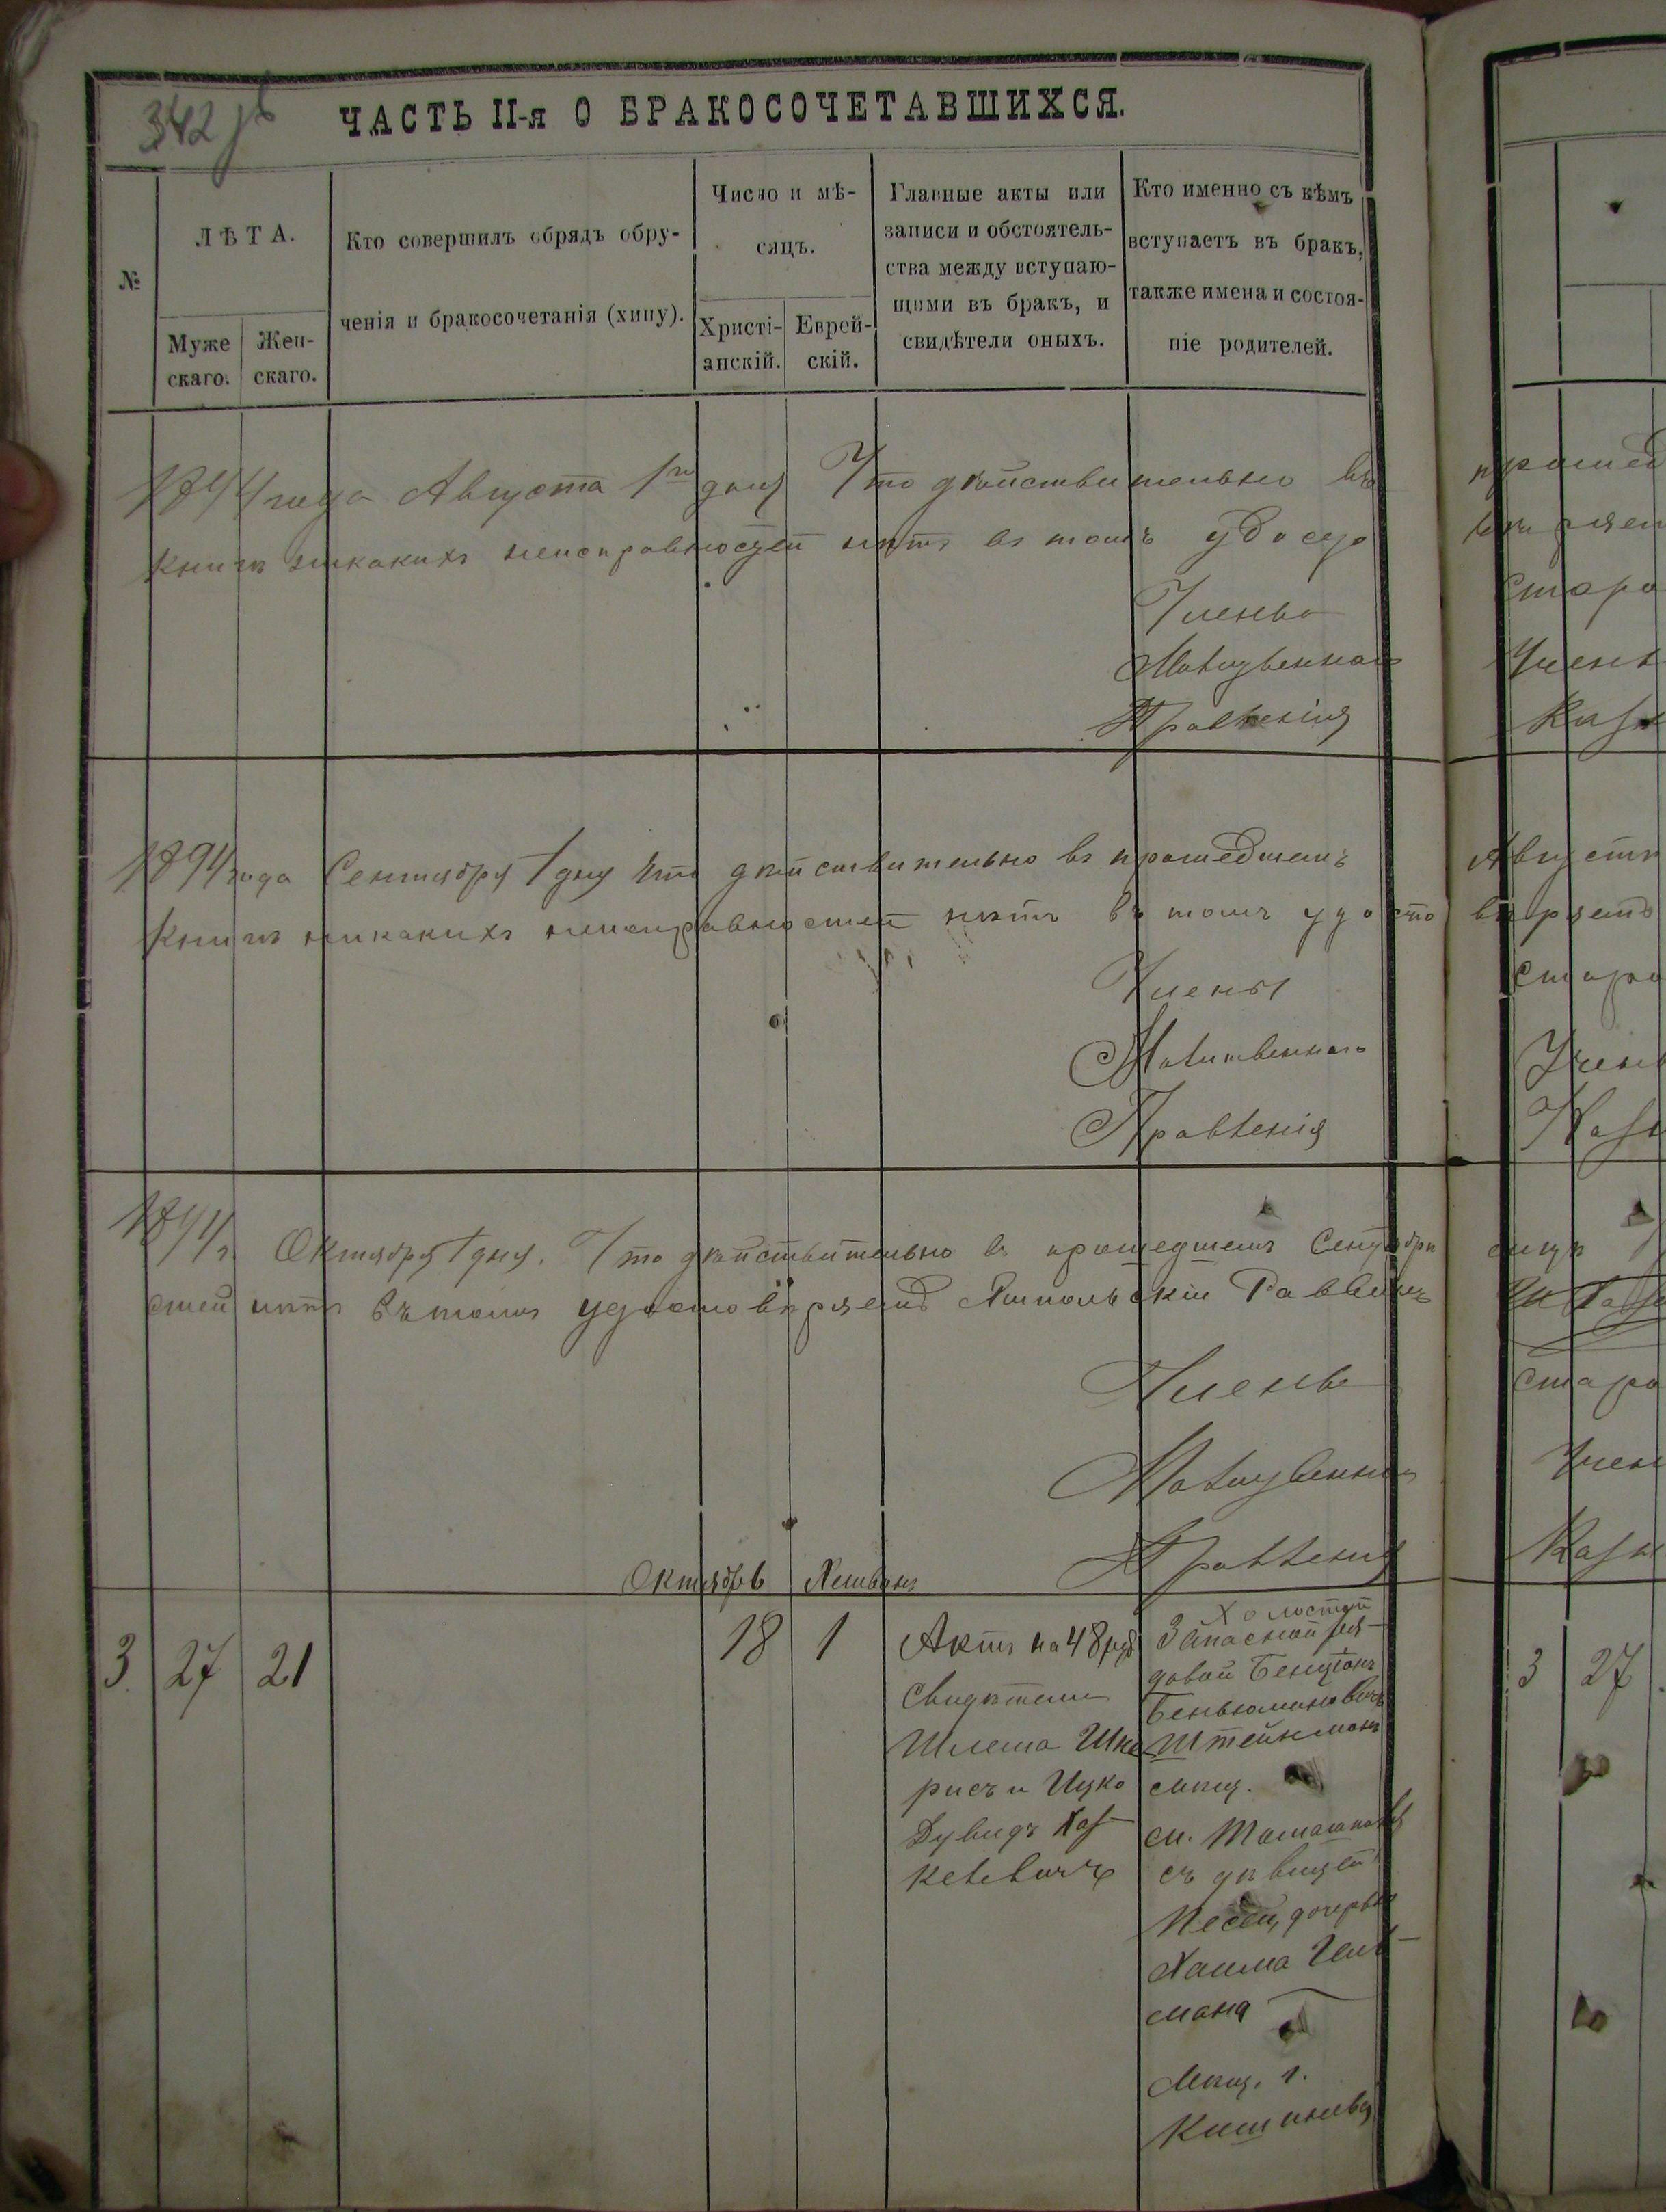 342 об
ЧАСТЬ II-я О БРАКОСОЧЕТАВШИХСЯ.
№
ЛѢТА.
Муже
скаго.
Жен-
скаго.
Кто совершилъ обрядъ обру-
ченія и бракосочетанія (хипу).
Число и мѣ-
сяцъ.
Христі-
анскій.
Еврей-
скій.
Главные акты или
записи и обстоятель-
ства между вступаю-
щими въ бракъ, и
свидѣтели оныхъ.
Кто именно съ кѣмъ
вступаетъ въ бракъ,
также имена и состоя-
ніе родителей.
1894 года Августа 1го дня Что дѣйствительно въ
книгѣ никакихъ неисправностей нѣтъ въ томъ удосто
Члены
Молитвеннаго
Правленія
1894 года Сентября 1 дня Что дѣйствительно въ прошедшемъ
книгѣ никакихъ неисправностей нѣтъ въ томъ удосто
Члены
Молитвеннаго
Правленія
1894 г. Октября 1 дня. Что дѣйствительно въ прошедшемъ Сентябрѣ
стей нѣтъ въ томъ удостовѣряетъ Раввинъ
Члены
Молитвеннаго
Правленія
Октябрь Хешванъ
3 27 21 18 1
Актъ на 48 руб
Свидѣтели
Шлема Шна
рисъ и Ицко
Дувидъ Хас
келевичъ
Холостой
Запасной ря-
довой Бенціонъ
Беньюминовичъ
Штейнманъ
мѣщ.
съ дѣвицей
Песей, дочерью
Хаима Гель-
мана
Мѣщ. г.
Кишинева
прошед
Старо
Члены
Каз
Августѣ
вѣряетъ
Старо
Члены
Каз
Старо
Члены
Казн
3 27